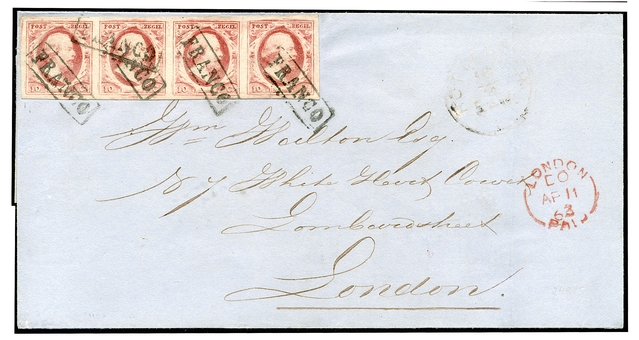 POST ZEGEL POST ZEGEL POST ZEGEL POST ZEGEL
10 10 10
FRANCO FRANCO FRANCO FRANCO FRANCO
Wm Esq.
No 7 White Hart Court
Lombardstreet
London.
LONDON
AP 11
63
PAID